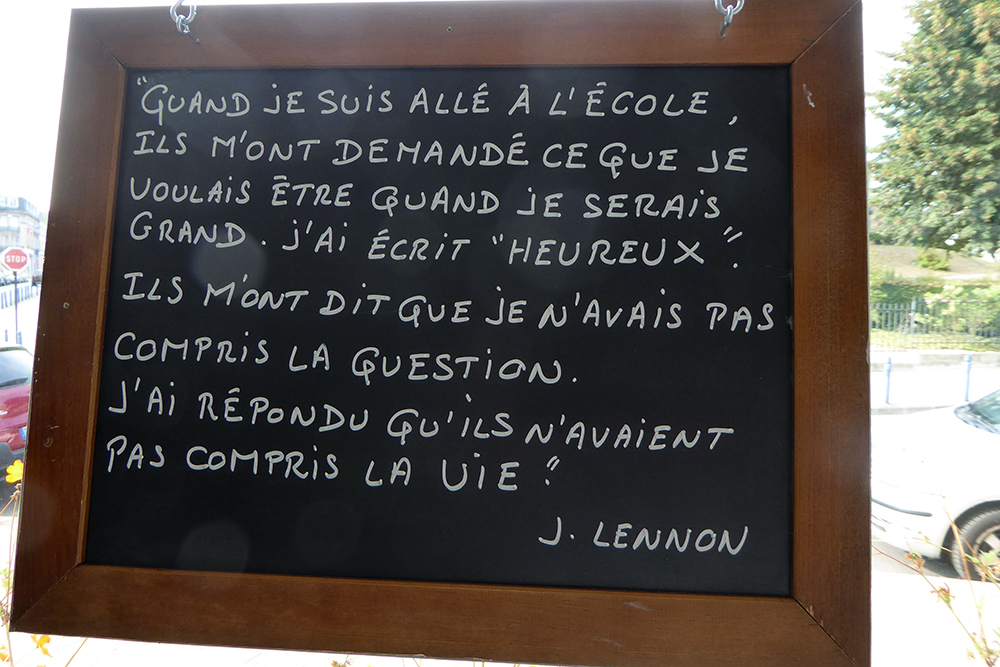 "QUAND JE SUIS ALLÉ À L'ÉCOLE,
ILS M'ONT DEMANDÉ CE QUE JE
VOULAIS ÊTRE QUAND JE SERAIS
GRAND. J'AI ÉCRIT "HEUREUX".
ILS M'ONT DIT QUE JE N'AVAIS PAS
COMPRIS LA QUESTION.
J'AI RÉPONDU QU'ILS N'AVAIENT
PAS COMPRIS LA VIE".
J. LENNON
STOP